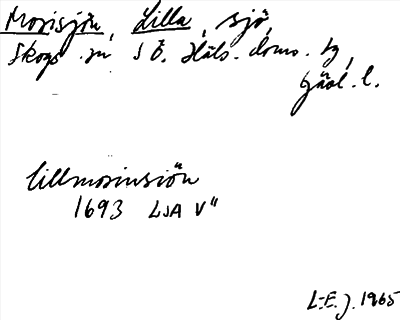 Morisjön, Lilla, sjö,
Skogs sn SÖ. Häls. doms. tg,
Gävl. l.
lillmorinsiön
1693 LSA V"
L-E. J. 1965